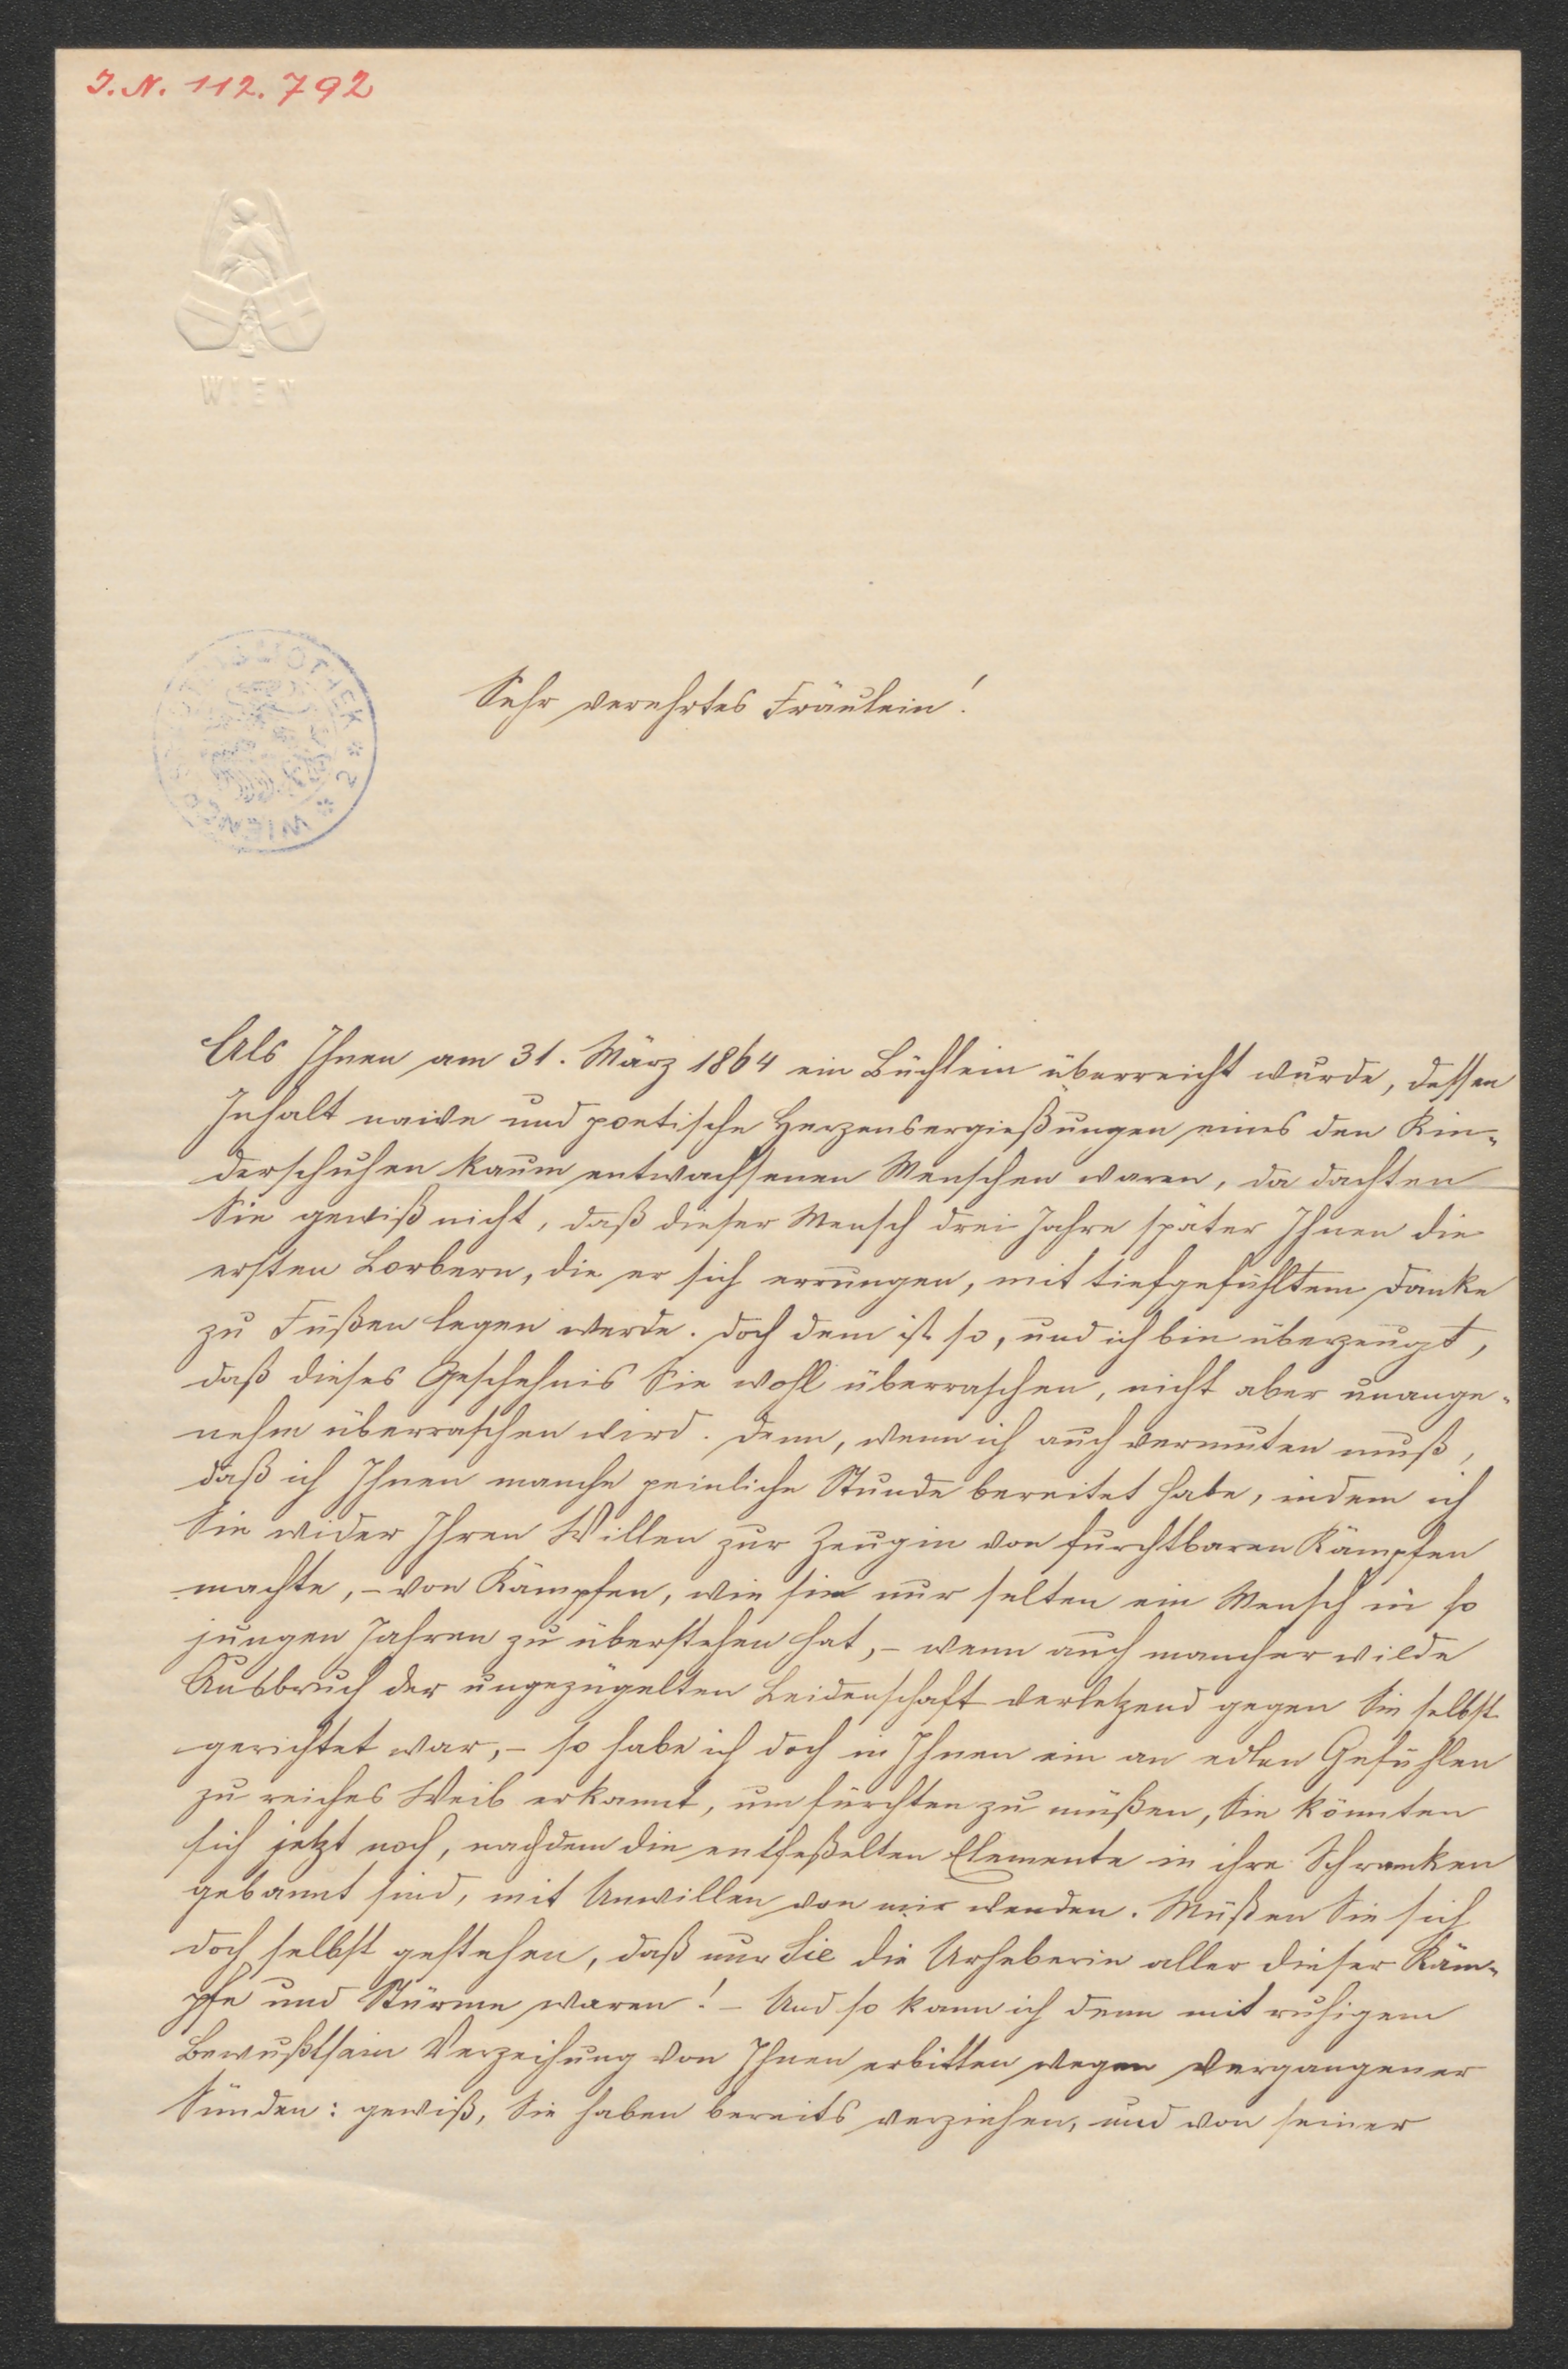 I. N. 112.792
WIEN
Sehr verehrtes Fräulein!
Als Ihnen am 31. März 1864 ein Büchlein überreicht wurde, dessen
Inhalt naive und poetische Herzensergießungen eines den Kin-
derschuhen kaum entwachsenen Menschen waren, da dachten
Sie gewiß nicht, daß dieser Mensch drei Jahre später Ihnen die
ersten Lorbern, die er sich errungen, mit tiefgefühltem Danke
zu Füßen legen werde. Doch dem ist so, und ich bin überzeugt,
daß dieses Geschehnis Sie wohl überraschen, nicht aber unange-
nehm überraschen wird. Denn, wenn ich auch vermuten muß,
daß ich Ihnen manche peinliche Stunde bereitet habe, indem ich
Sie wider Ihren Willen zur Zeugin von furchtbaren Kämpfen
machte, - von Kämpfen, wie sie nur selten ein Mensch in so
jungen Jahren zu überstehen hat, - wenn auch mancher wilde
Ausbruch der ungezügelten Leidenschaft verletzend gegen Sie selbst
gerichtet war, - so habe ich doch in Ihnen ein an edlen Gefühlen
zu reiches Weib erkannt, um fürchten zu müßen, Sie könnten
sich jetzt noch, nachdem die entfeßelten Elemente in ihre Schranken
gebannt sind, mit Unwillen von mir wenden. Müßen Sie sich
doch selbst gestehen, daß nur Sie die Urheberin aller dieser Käm-
pfe und Stürme waren! - Und so kann ich denn mit ruhigem
Bewußtsein Verzeihung von Ihnen erbitten wegen vergangener
Sünden: gewiß, Sie haben bereits verziehen, und von seiner